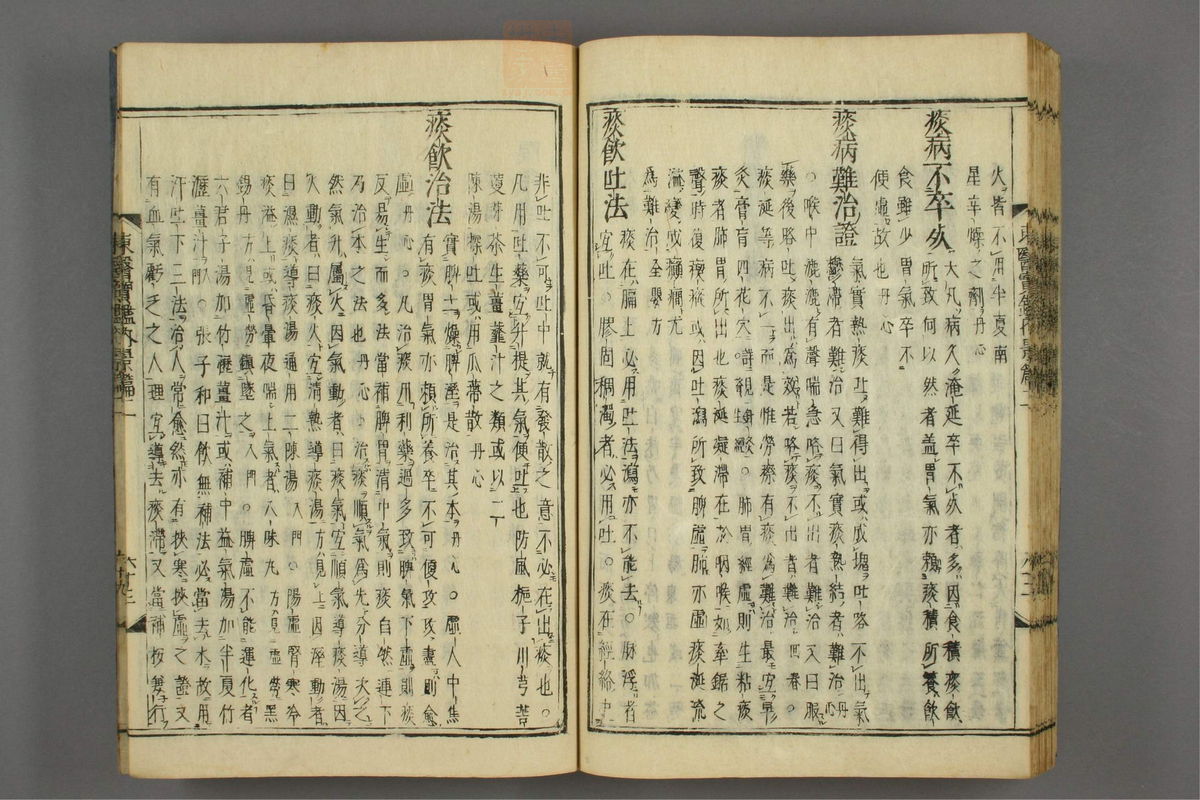 火皆不用半夏南
星辛燥之劑丹心
痰病不卒死
大凡病久淹延卒不死者多因食積痰飮
所致何以然者盖胃氣亦賴痰積所養飮
食雖少胃氣卒不
便虛故也丹心
痰病難治證
氣實熱痰吐難得出或成塊吐咯不出氣
鬱滯者難治又曰氣實痰熱結者難治丹心
○喉中漉漉有聲喘急咯痰不出者難治又曰服
藥後咯吐痰出爲效若咯痰不出者難治回春○
痰涎等病不一而是惟勞瘵有痰爲難治最宜早
灸膏肓四花穴詳見鍼灸○肺胃經虛則生粘痰
痰者肺胃所出也痰涎凝滯在於咽喉如牽鋸之
聲時復㾞瘲或因吐瀉所致脾虛肺亦虛痰涎流
溢變或癲癎尤
爲難治全嬰方
痰飮吐法
痰在膈上必用吐法瀉亦不能去○脉浮者
宜吐○膠固稠濁者必用吐○痰在經絡中
非吐不可吐中就有發散之意不必在出痰也○
凡用吐藥宜升提其氣便吐也防風梔子川芎苦
蔓芽茶生薑虀汁之類或以二
陳湯探吐或用瓜蒂散丹心
痰飮治法
實脾土燥脾濕是治其本丹心○虛人中焦
有痰胃氣亦賴所養卒不可便攻攻盡則愈
虛丹心○凡治痰用利藥過多致脾氣下虛則痰
反易生而多法當補脾胃淸中氣則痰自然運下
乃治本之法也丹心○治痰順氣爲先分導次之
然氣升屬火因氣動者曰痰氣宜順氣導痰湯因
火動者曰痰火宜淸熱導痰湯方見上因濕動者
曰濕痰導痰湯通用二陳湯入門○陽虛腎寒冷
痰溢上或昏暈夜喘上氣者八味丸方見虛勞黑
錫丹方見虛勞鎭墜之入門○脾虛不能運化者
六君子湯加竹瀝薑汁或補中益氣湯加半夏竹
瀝薑汁入門○張子和曰飮無補法必當去水故用
汗吐下三法治人常愈然亦有挾寒挾虛之證又
有血氣虧乏之人理宜導去痰滯又當補接兼行
東醫寶鑑內景篇二
六十九